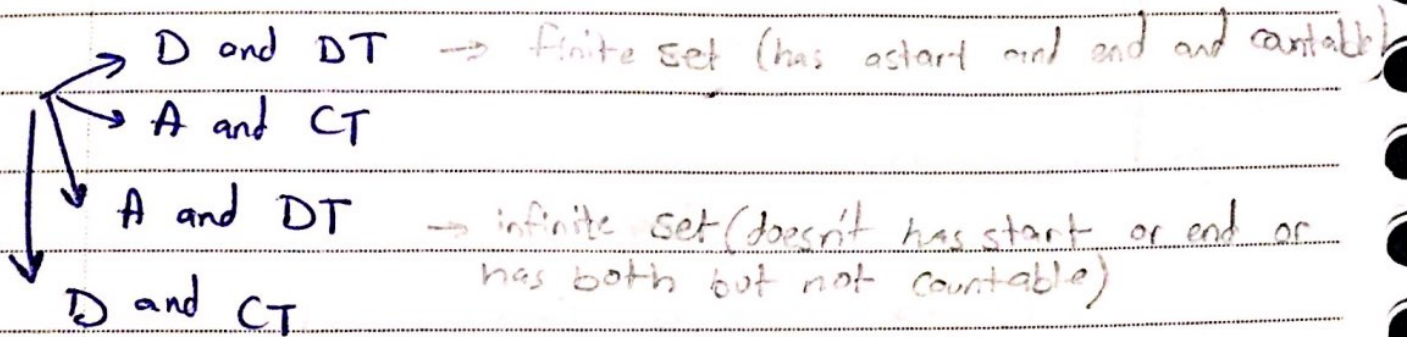 D and DT → finite set (has astart and end and countable)
A and CT
A and DT → infinite set (doesn't has start or end or
has both but not countable)
D and CT